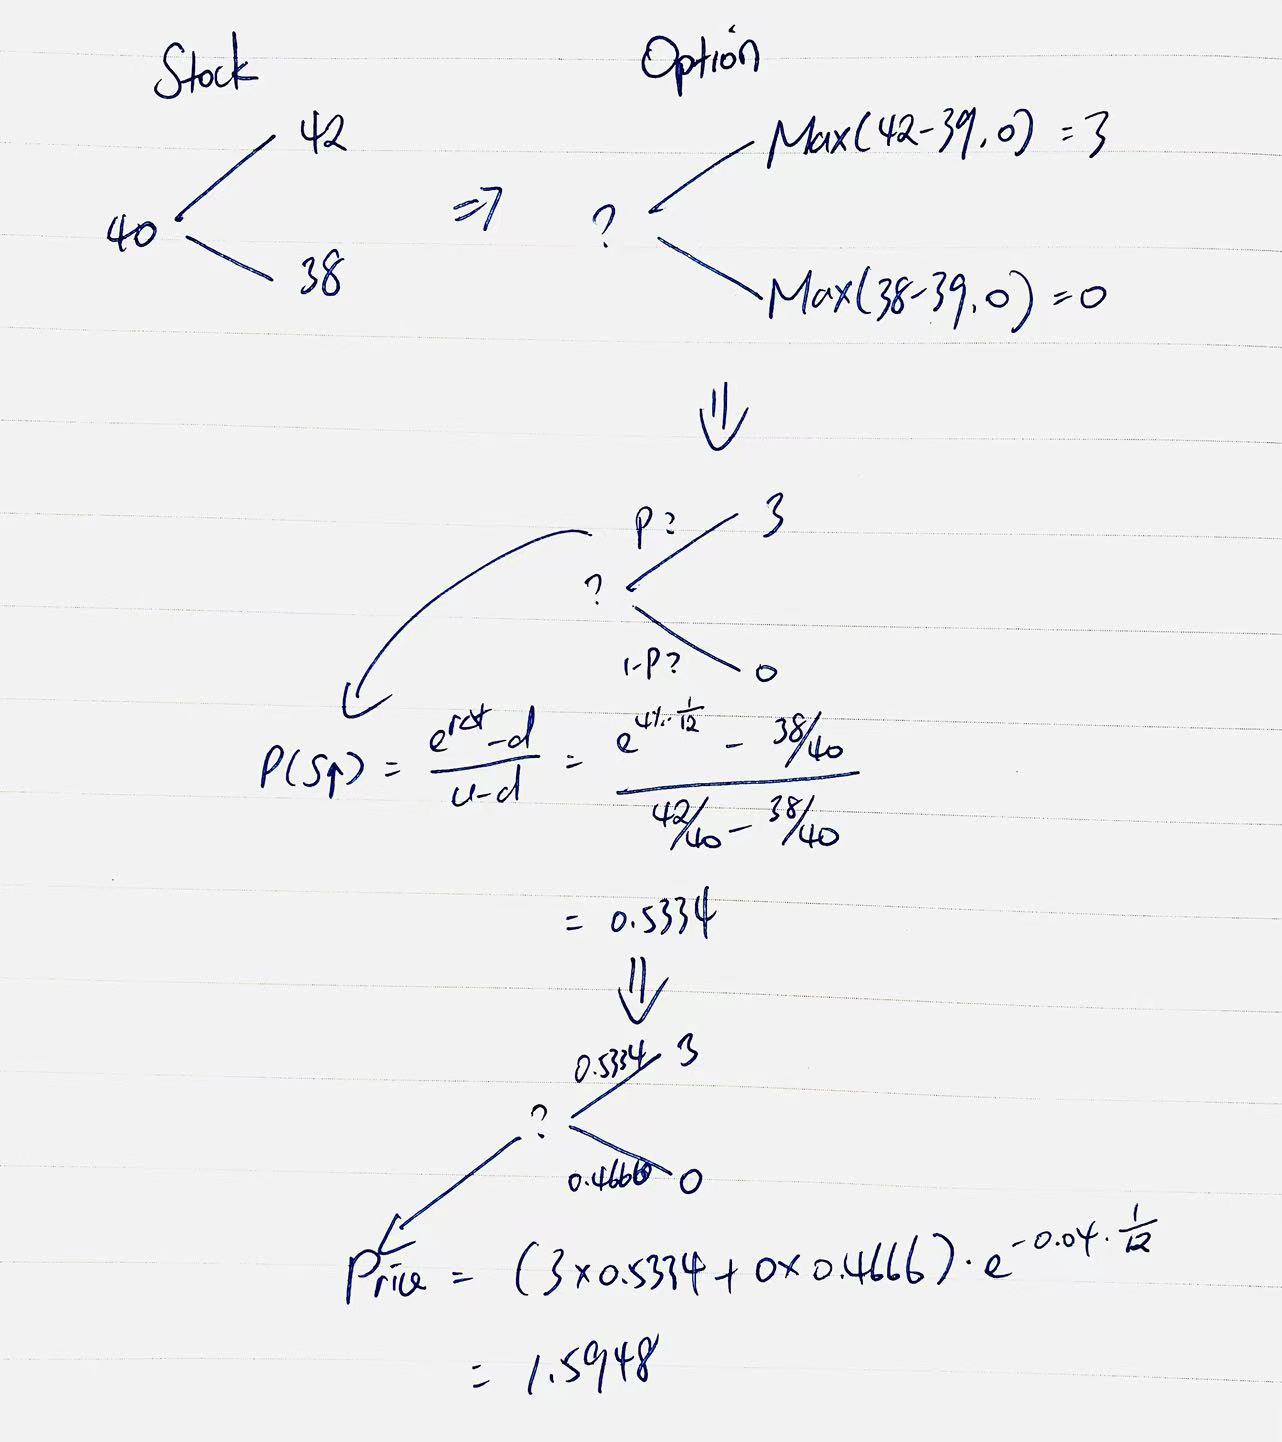 Stock Option
42 Max(42-39,0) = 3
40 => ?
38 Max(38-39,0) = 0
⇓
P? 3
?
1-P? 0
P(S↑) = (e^rΔt - d)/(u-d) = (e^(4%·1/12) - 38/40)/(42/40 - 38/40)
= 0.5334
⇓
0.5334 3
?
0.4666 0
Price = (3×0.5334 + 0×0.4666)·e^(-0.04·1/12)
= 1.5948